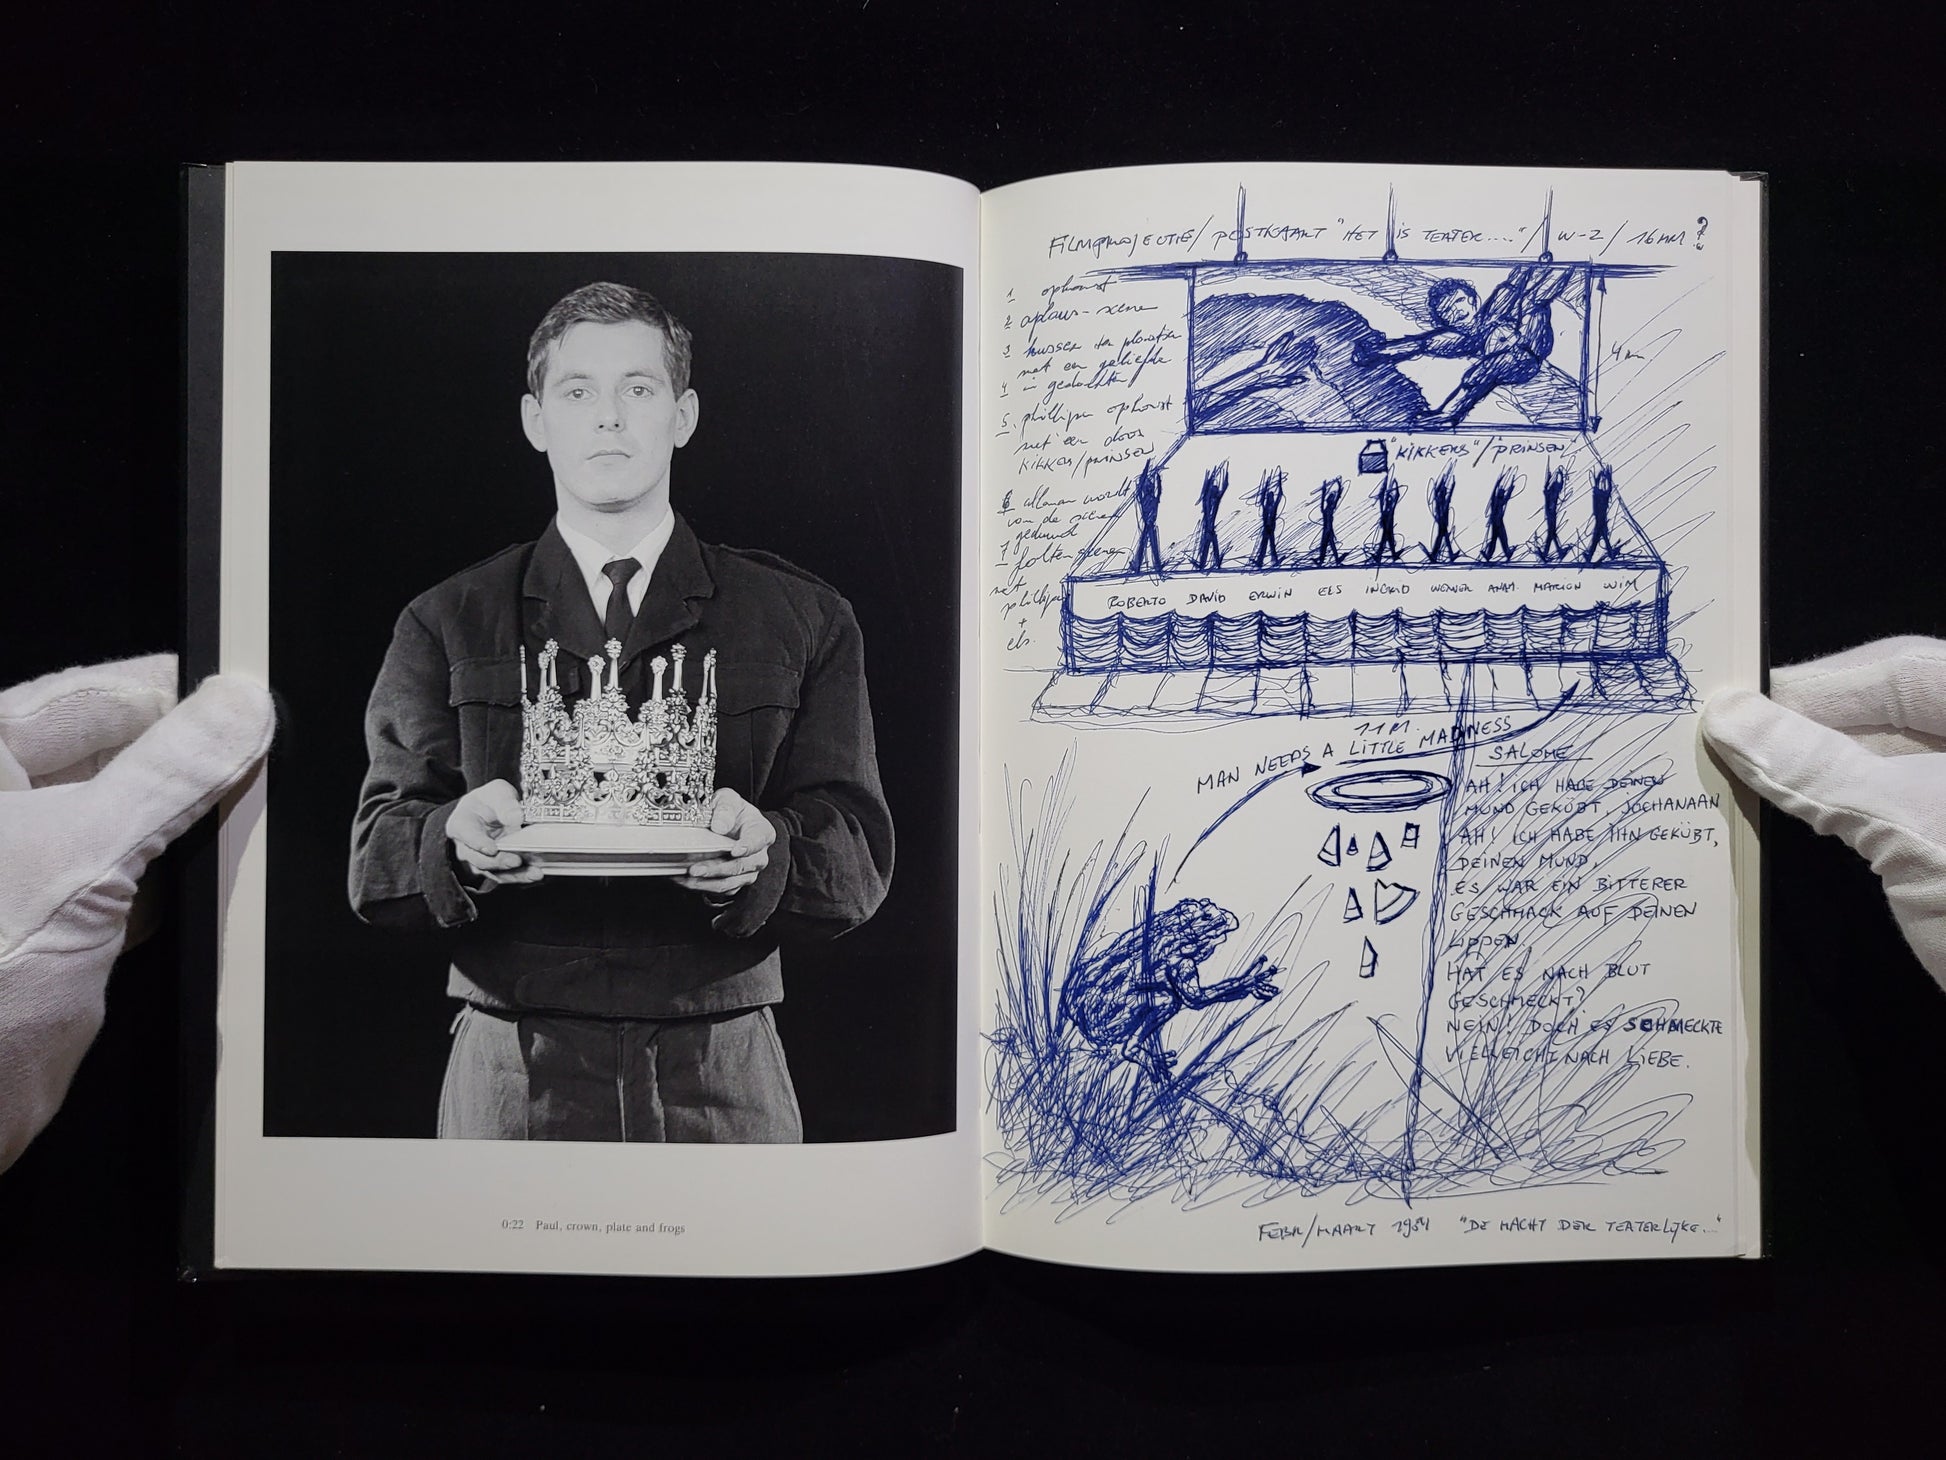 0:22 Paul, crown, plate and frogs
FILMPROJECTIE/ POSTKAART "HET IS TEATER...."/ W-Z/ 16MM?
1 opkomst
2 aplaus-scene
3 kussen ter plaatse
met een geliefde
4 in gedachten
5. phillipe opkomst
met een doos
KIKKERS/PRINSEN
6 allemaal wordt
van de scene
geduwd
7 folterscene
met
phillipe
+
els.
4m.
"KIKKERS"/"PRINSEN"
ROBERTO DAVID ERWIN ELS INGRID WERNER ANM. MARION WIM
11M.
MAN NEEDS A LITTLE MADNESS
SALOME
AH! ICH HABE DEINEN
MUND GEKÜßT, JOCHANAAN
AH! ICH HABE IHN GEKÜßT,
DEINEN MUND,
ES WAR EIN BITTERER
GESCHMACK AUF DEINEN
LIPPEN.
HAT ES NACH BLUT
GESCHMECKT?
NEIN! DOCH ES SCHMECKTE
VIELLEICHT NACH LIEBE.
FEBR/MAART 1984 "DE MACHT DER TEATERLIJKE...."